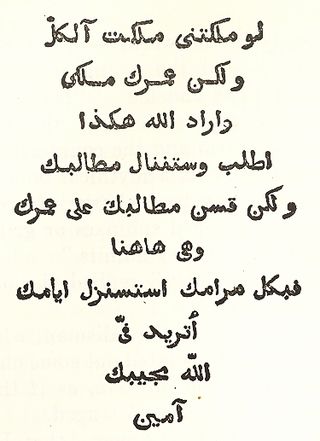 لو ملكتنى ملكت آلكلّ
ولكن عمرك ملكى
واراد الله هكذا
اطلب وستننال مطالبك
ولكن قسن مطالبك على عمرك
وهى هاهنا
فبكل مرامك استسنزل ايامك
أتريد فىّ
الله مجيبك
آمين